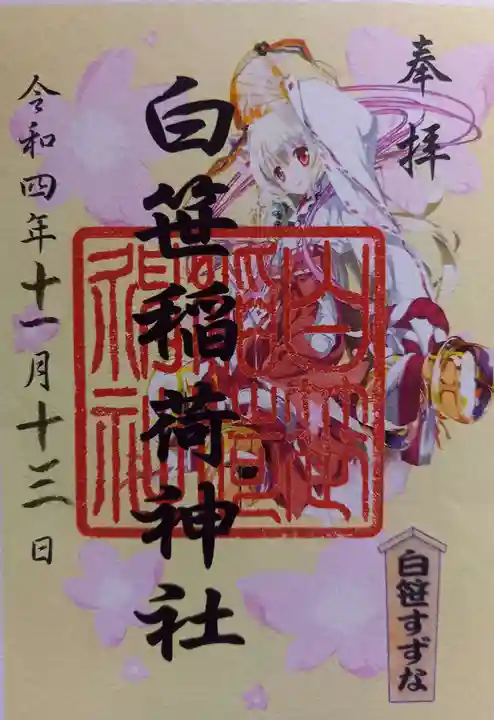 奉拝
白笹稲荷神社
令和四年十一月十三日
白笹すずな